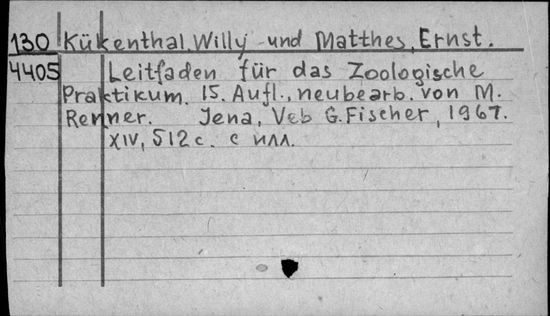 130 Kükenthal, Willy und Matthes, Ernst.
4405 Leitfaden für das Zoologische
Praktikum. 15. Aufl., neubearb. von M.
Renner. Jena, Veb G. Fischer, 1967.
XIV, 512 c. с илл.